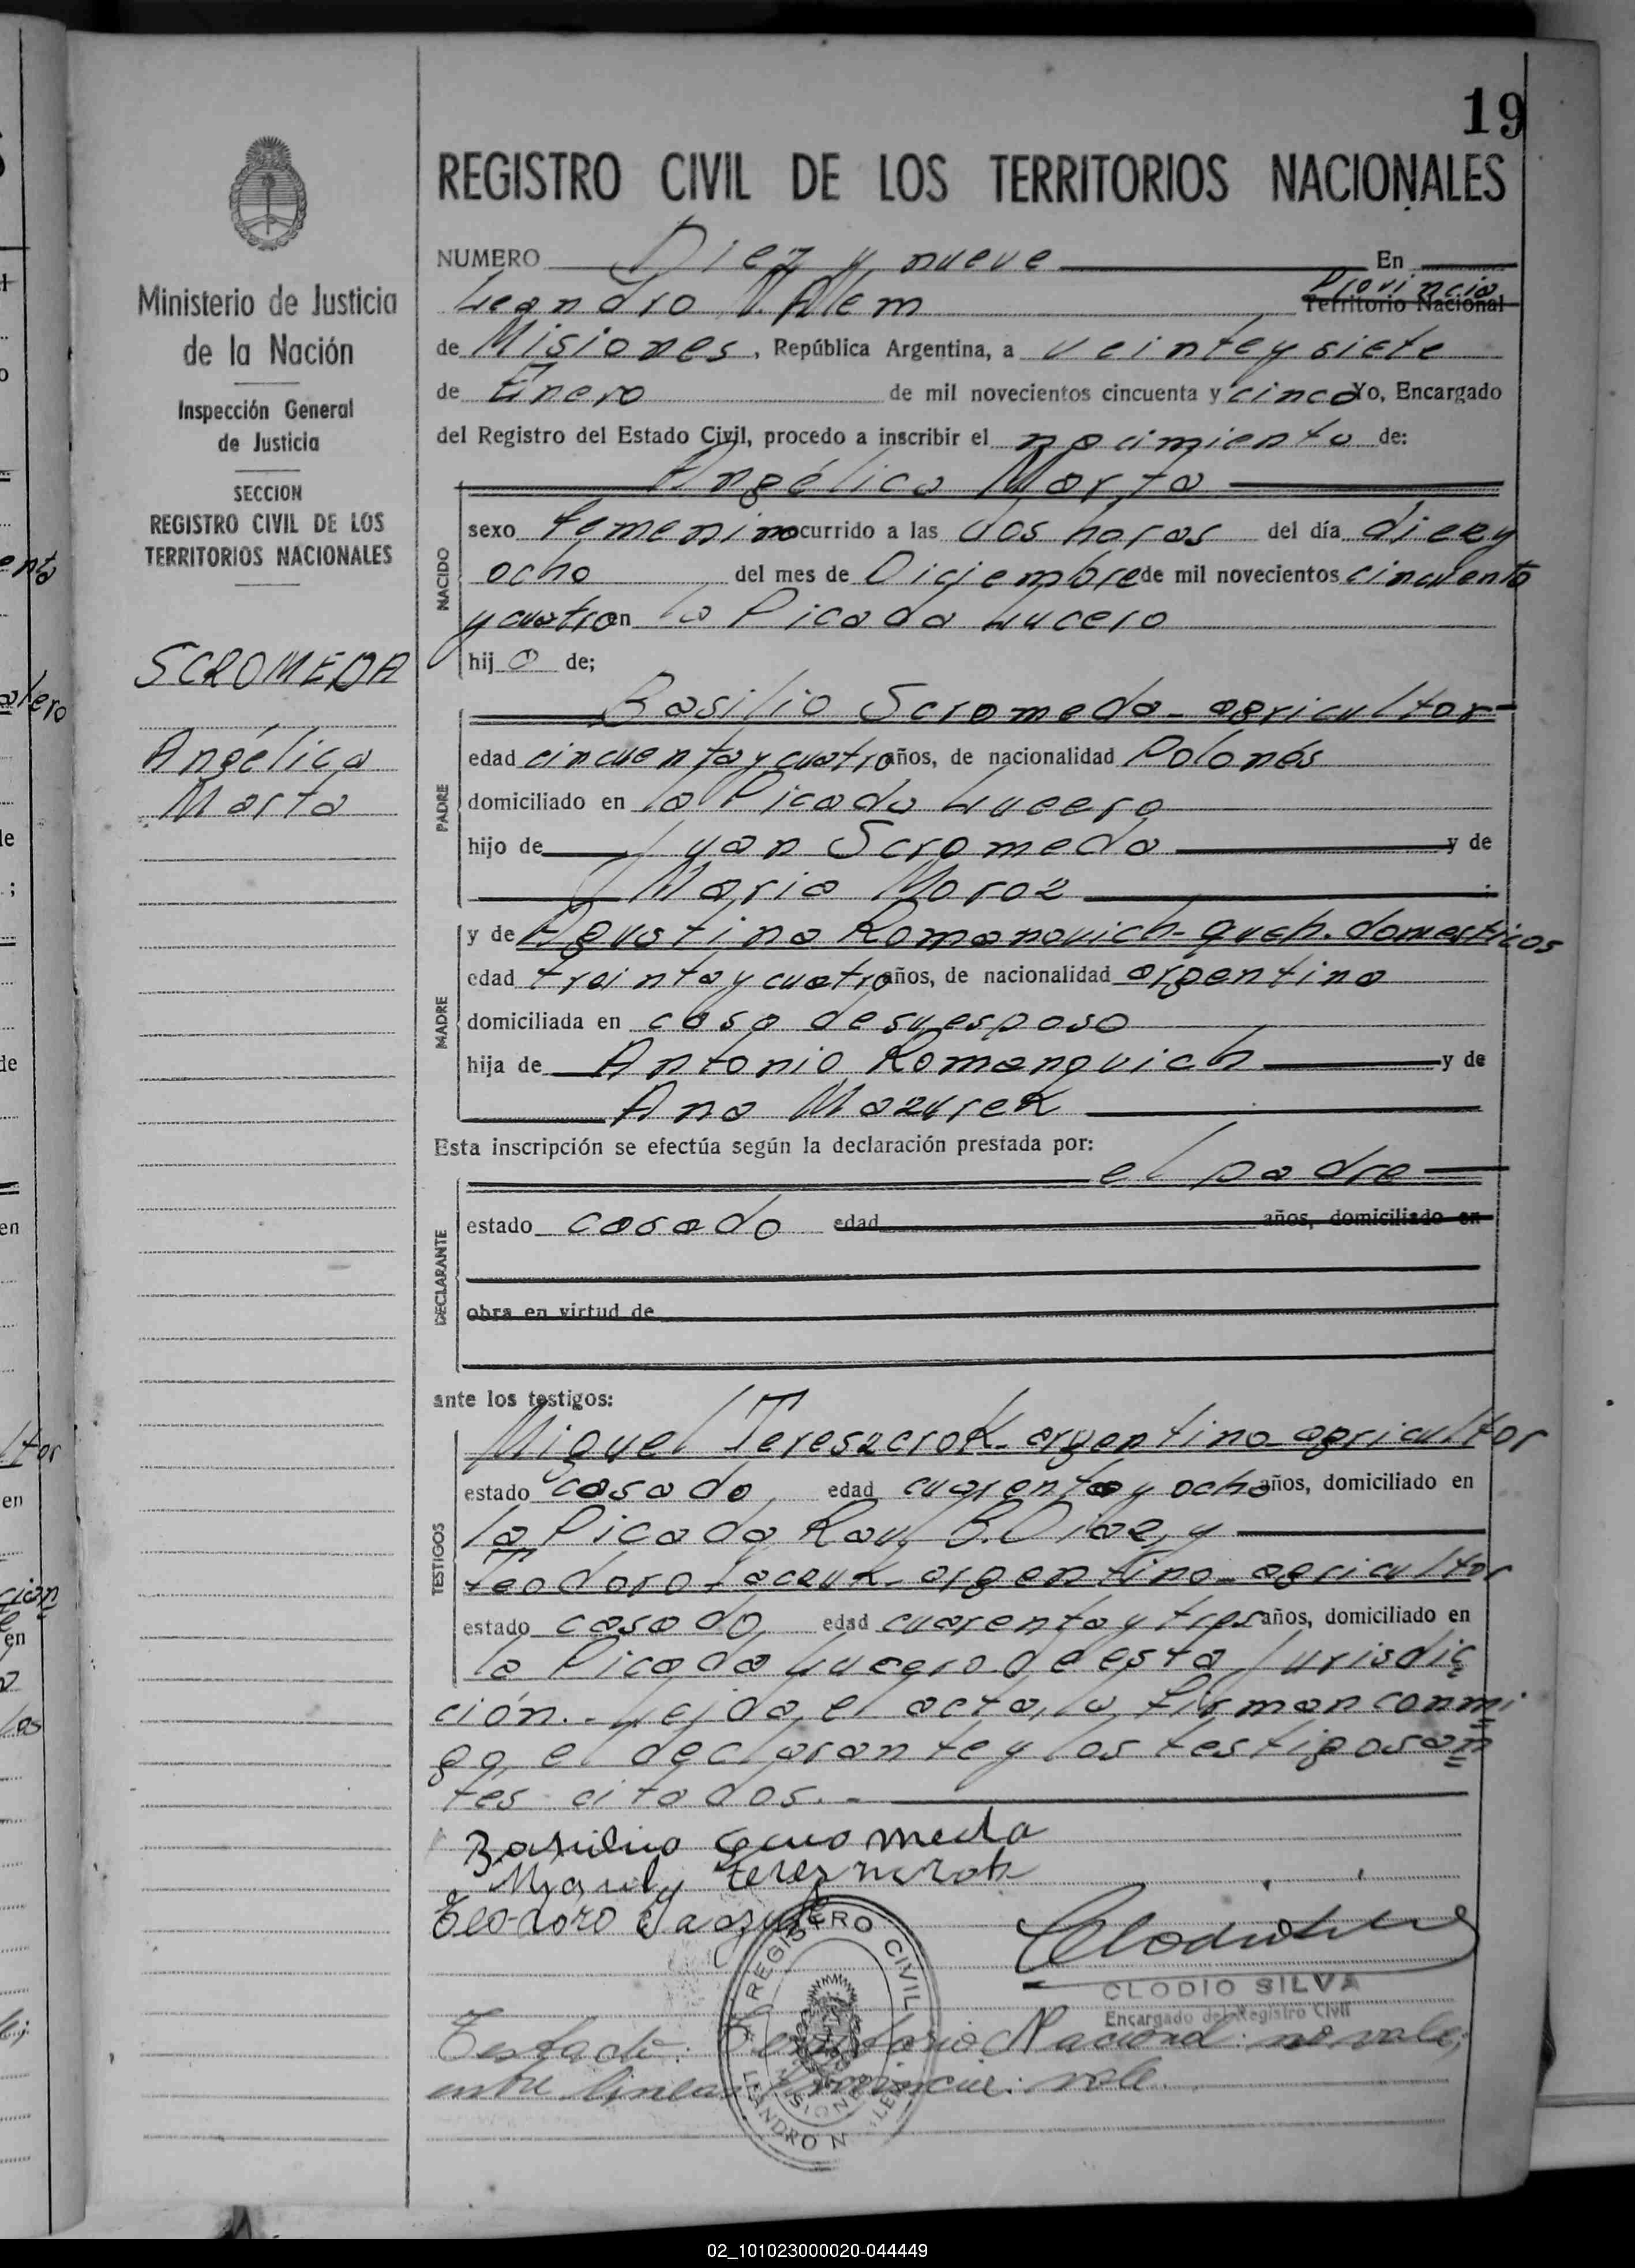 19
REGISTRO CIVIL DE LOS TERRITORIOS NACIONALES
Ministerio de Justicia
de la Nación
Inspección General
de Justicia
SECCION
REGISTRO CIVIL DE LOS
TERRITORIOS NACIONALES
SCROMEDA
Angélica
Marta
NUMERO Diez y nueve En
Leandro N. Alem Provincia Territorio Nacional
de Misiones, República Argentina, a veinte y siete
de Enero de mil novecientos cincuenta y cinco Yo, Encargado
del Registro del Estado Civil, procedo a inscribir el nacimiento de:
Angélica Marta
NACIDO
sexo femenino ocurrido a las dos horas del día diez y
ocho del mes de Diciembre de mil novecientos cincuenta
y cuatro en la Picada Lucero
hij a de;
Basilio Scromeda - agricultor -
PADRE
edad cincuenta y cuatro años, de nacionalidad Polonés
domiciliado en la Picada Lucero
hijo de Juan Scromeda y de
Maria Moroz
MADRE
y de Agustina Romanovich - queh. domesticos
edad treinta y cuatro años, de nacionalidad argentina
domiciliada en casa de su esposo
hija de Antonio Romanovich y de
Ana Mazurek
Esta inscripción se efectúa según la declaración prestada por:
el padre
DECLARANTE
estado casado edad años, domiciliado en
obra en virtud de
ante los testigos:
TESTIGOS
Miguel Tereszcrok - argentino - agricultor
estado casado, edad cuarenta y ocho años, domiciliado en
la Picada Raul B. Diaz, y
Teodoro - argentino - agricultor
estado casado, edad cuarenta y tres años, domiciliado en
la Picada Lucero de esta Jurisdic
ción.- Leida el acta, la firman conmi
go, el declarante y los testigos an
tes citados.-
Basilio Scromeda
Miguel
Teodoro
CLODIO SILVA
Encargado del Registro Civil
REGISTRO CIVIL
MISIONES
LEANDRO N. ALEM
Testado: Territorio Nacional: no vale;
entre lineas: Provincia: vale.
02_101023000020-044449